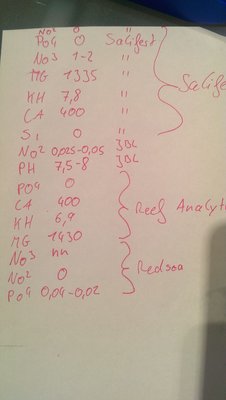 NO² 0 "
PO4 0 Salifert
NO3 1-2 "
MG 1335 "
KH 7,8 "
CA 400 "
Si 0 "
Salifer
NO² 0,025-0,05 JBL
PH 7,5-8 JBL
PO4 0
CA 400
KH 6,9
MG 1430
Reef Analyti
NO3 nn
NO² 0
PO4 0,04-0,02
Redsea